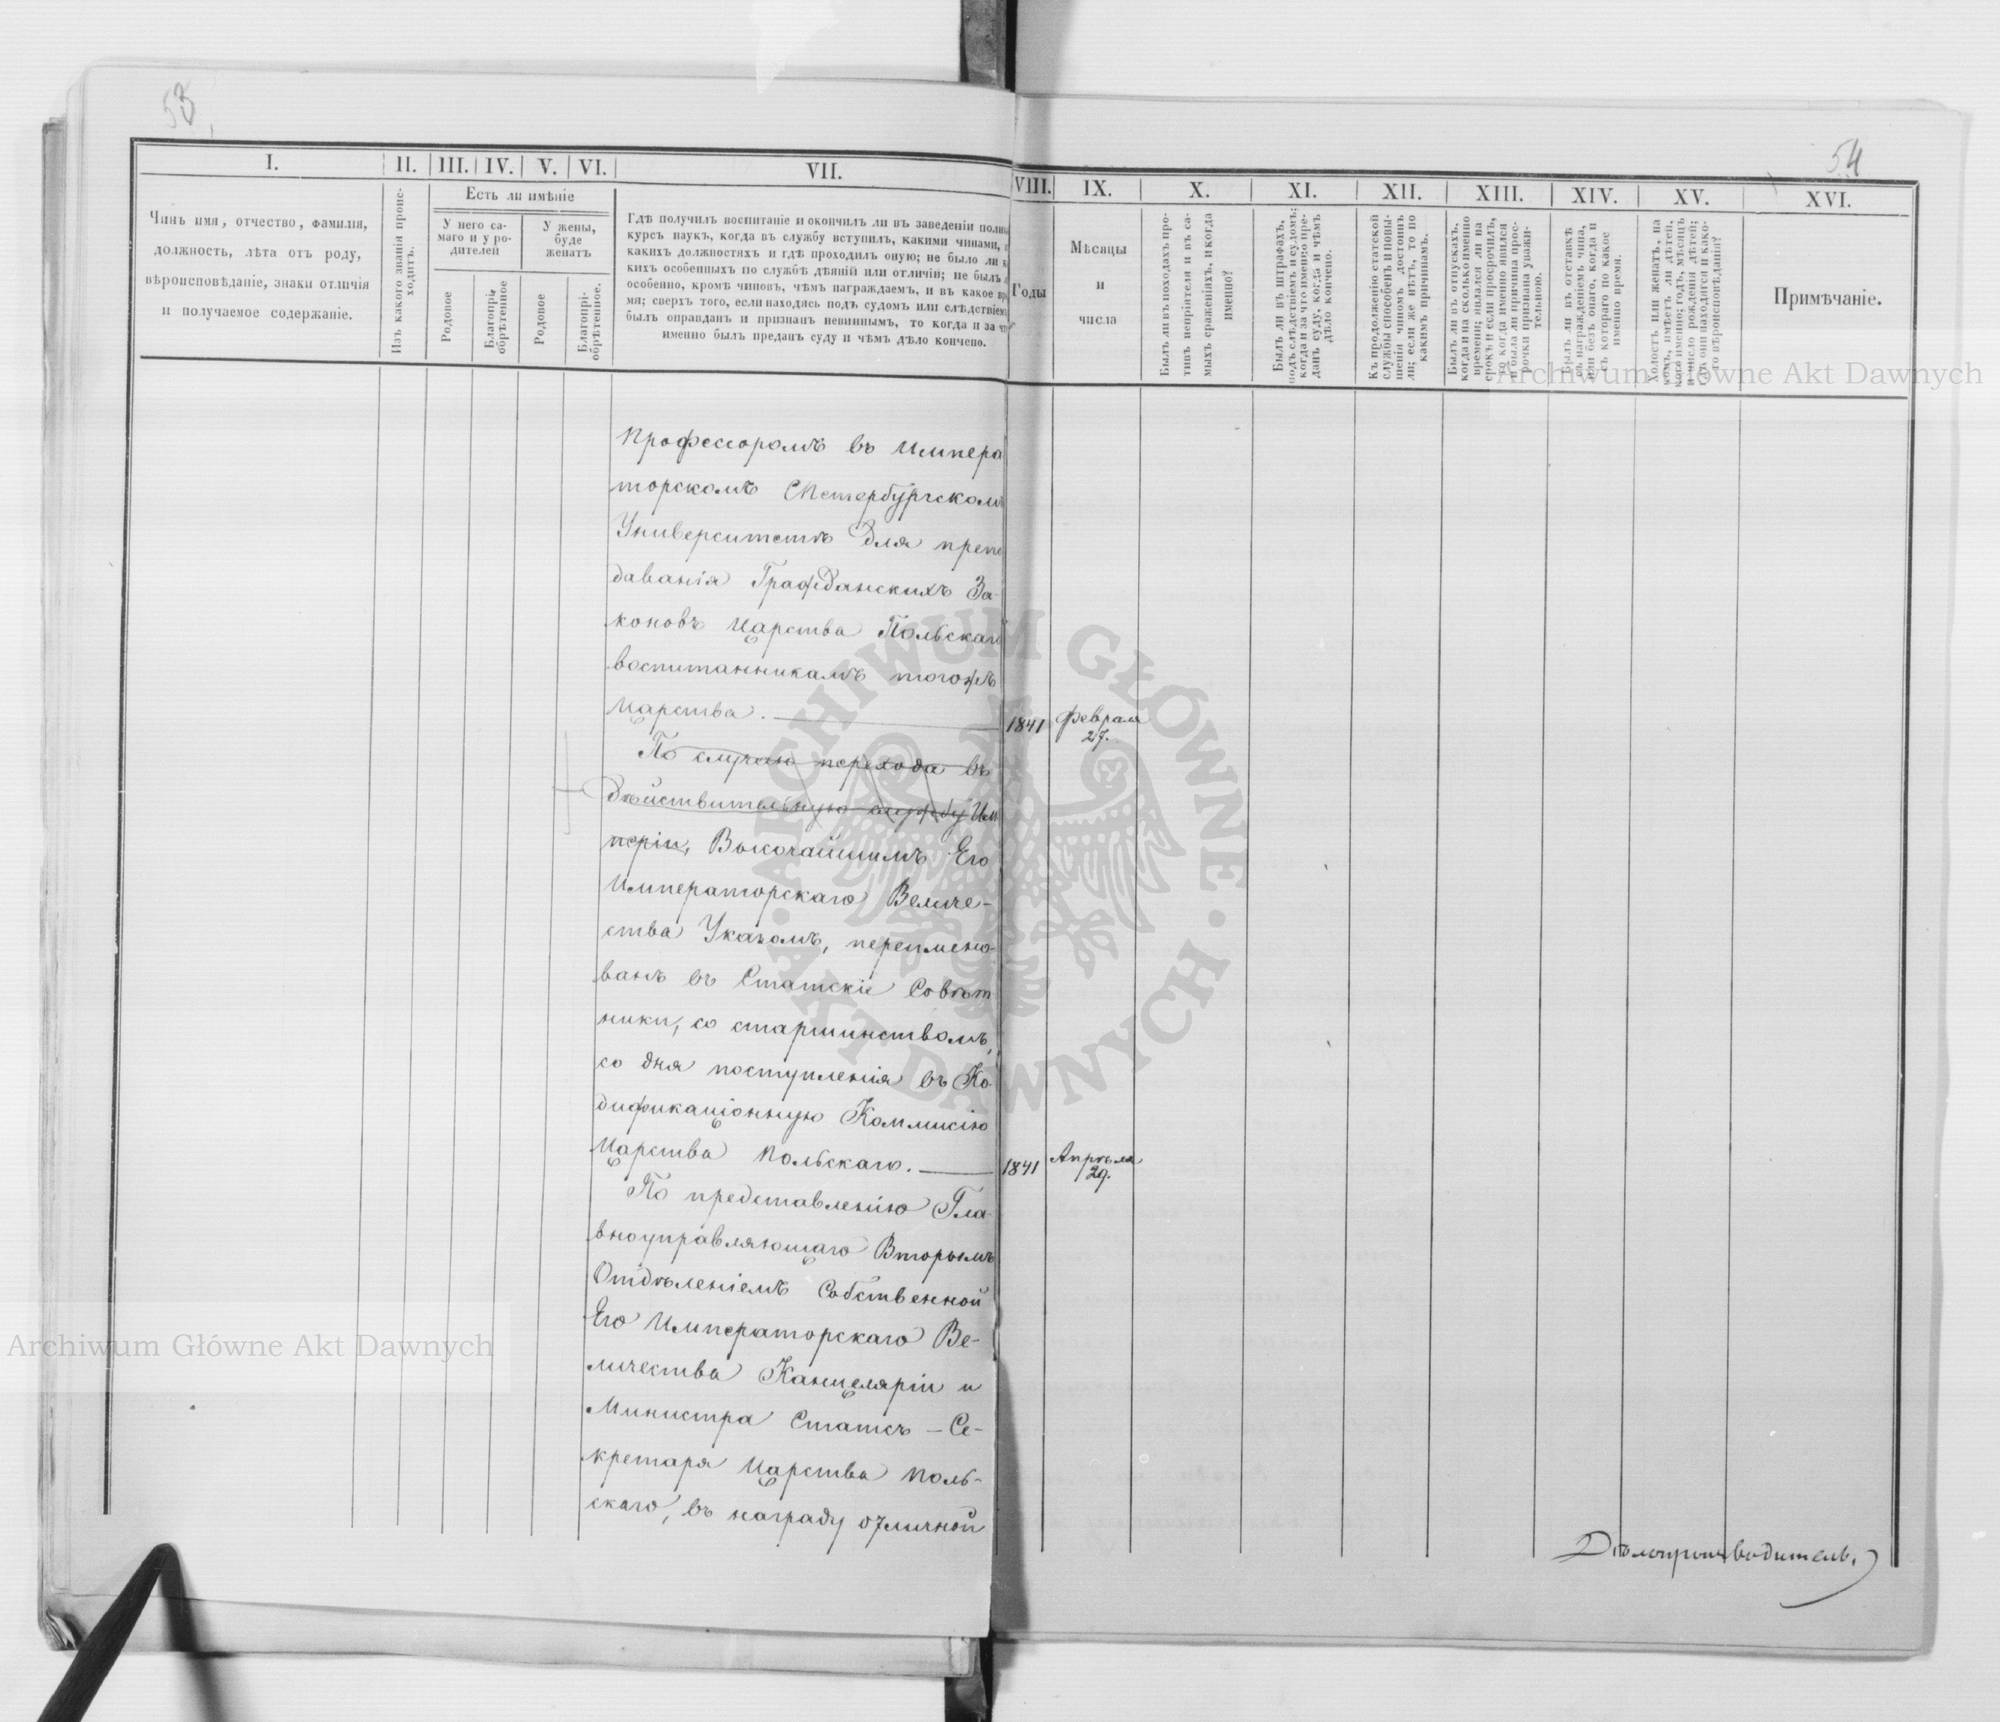 53
54
I.
II.
III.
IV.
V.
VI.
VII.
VIII.
IX.
X.
XI.
XII.
XIII.
XIV.
XV.
XVI.
Чинъ имя, отчество, фамилія,
должность, лѣта отъ роду,
вѣроисповѣданіе, знаки отличія
и получаемое содержаніе.
Изъ какого званія проис-
ходитъ.
Есть ли имѣніе
У него са-
маго и у ро-
дителей
У жены,
буде
женатъ
Родовое
Благопрі-
обрѣтенное
Родовое
Благопрі-
обрѣтенное.
Гдѣ получилъ воспитаніе и окончилъ ли въ заведеніи полны
курсъ наукъ, когда въ службу вступилъ, какими чинами,
какихъ должностяхъ и гдѣ проходилъ оную; не было ли к
кихъ особенныхъ по службѣ дѣяній или отличій; не былъ л
особенно, кромѣ чиновъ, чѣмъ награждаемъ, и въ какое вре
мя; сверхъ того, если находясь подъ судомъ или слѣдствіем
былъ оправданъ и признанъ невиннымъ, то когда и за что
именно былъ преданъ суду и чѣмъ дѣло кончено.
Годы
Мѣсяцы
и
числа
Былъ ли въ походахъ про-
тивъ непріятеля и въ са-
мыхъ сраженіяхъ, и когда
именно?
Былъ ли въ штрафахъ,
подъ слѣдствіемъ и судомъ;
когда и за что именно пре-
данъ суду, когда и чѣмъ
дѣло кончено.
Къ продолженію статской
службы способенъ и повы-
шенія чиномъ достоинъ
ли; если же нѣтъ, то по
какимъ причинамъ.
Былъ ли въ отпускахъ,
когда и на сколько именно
времени; являлся ли на
срокъ и если просрочилъ,
то когда именно явился
и была ли причина прос-
рочки признана уважи-
тельною.
Былъ ли въ отставкѣ
съ награжденіемъ чина,
или безъ онаго, когда и
съ котораго по какое
именно время.
Холостъ или женатъ, на
комъ, имѣетъ ли дѣтей,
кого именно; годъ, мѣсяцъ
и число рожденія дѣтей;
гдѣ они находятся и како-
го вѣроисповѣданія?
Примѣчаніе.
Профессоромъ въ Импера
торскомъ СПетербургскомъ
Университетѣ для препо
даванія Гражданскихъ За-
коновъ Царства Польскаго
воспитанникамъ тогожъ
Царства.
1841 Февраля
27.
По случаю перехода въ
дѣйствительную службу Им
періи, Высочайшимъ Его
Императорскаго Величе-
ства Указомъ, переимено-
ванъ въ Статскіе Совѣт
ники, со старшинствомъ,
со дня поступленія въ Ко
дификаціонную Коммисію
Царства Польскаго.
1841 Апрѣля
29.
По представленію Гла-
вноуправляющаго Вторымъ
Отдѣленіемъ Собственной
Его Императорскаго Ве-
личества Канцеляріи и
Министра Статсъ-Се-
кретаря Царства Поль-
скаго, въ награду отличной
Дѣлопроизводитель.
Archiwum Główne Akt Dawnych
Archiwum Główne Akt Dawnych
ARCHIWUM GŁÓWNE · AKT DAWNYCH ·